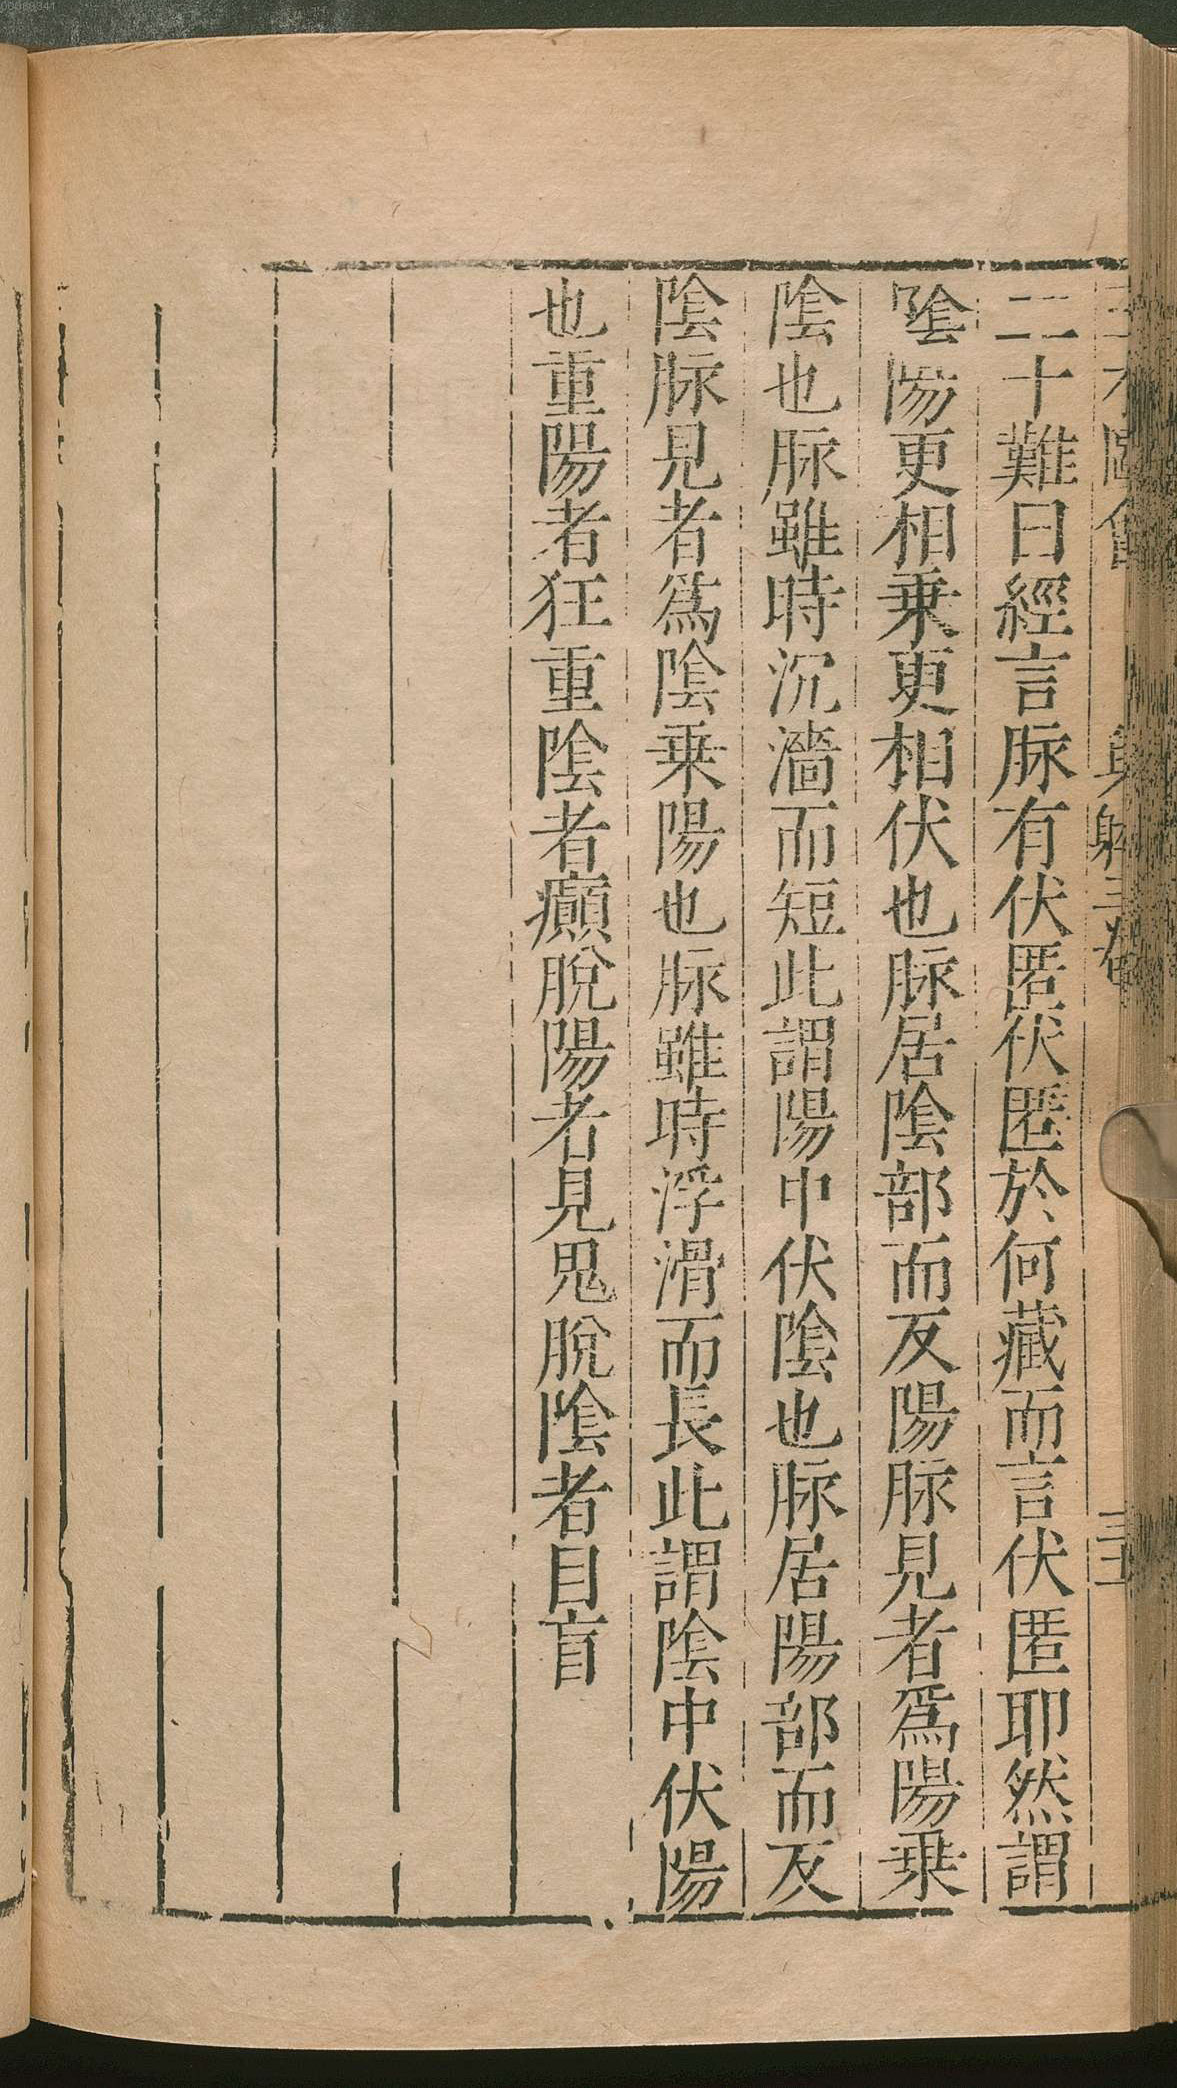 二十難曰經言脉有伏匿伏匿於何藏而言伏匿耶然謂
陰陽更相乗更相伏也脉居陰部而反陽脉見者爲陽乗
陰也脉雖時沉濇而短此謂陽中伏陰也脉居陽部而反
陰脉見者爲陰乗陽也脉雖時浮滑而長此謂陰中伏陽
也重陽者狂重陰者癲脫陽者見鬼脫陰者目盲